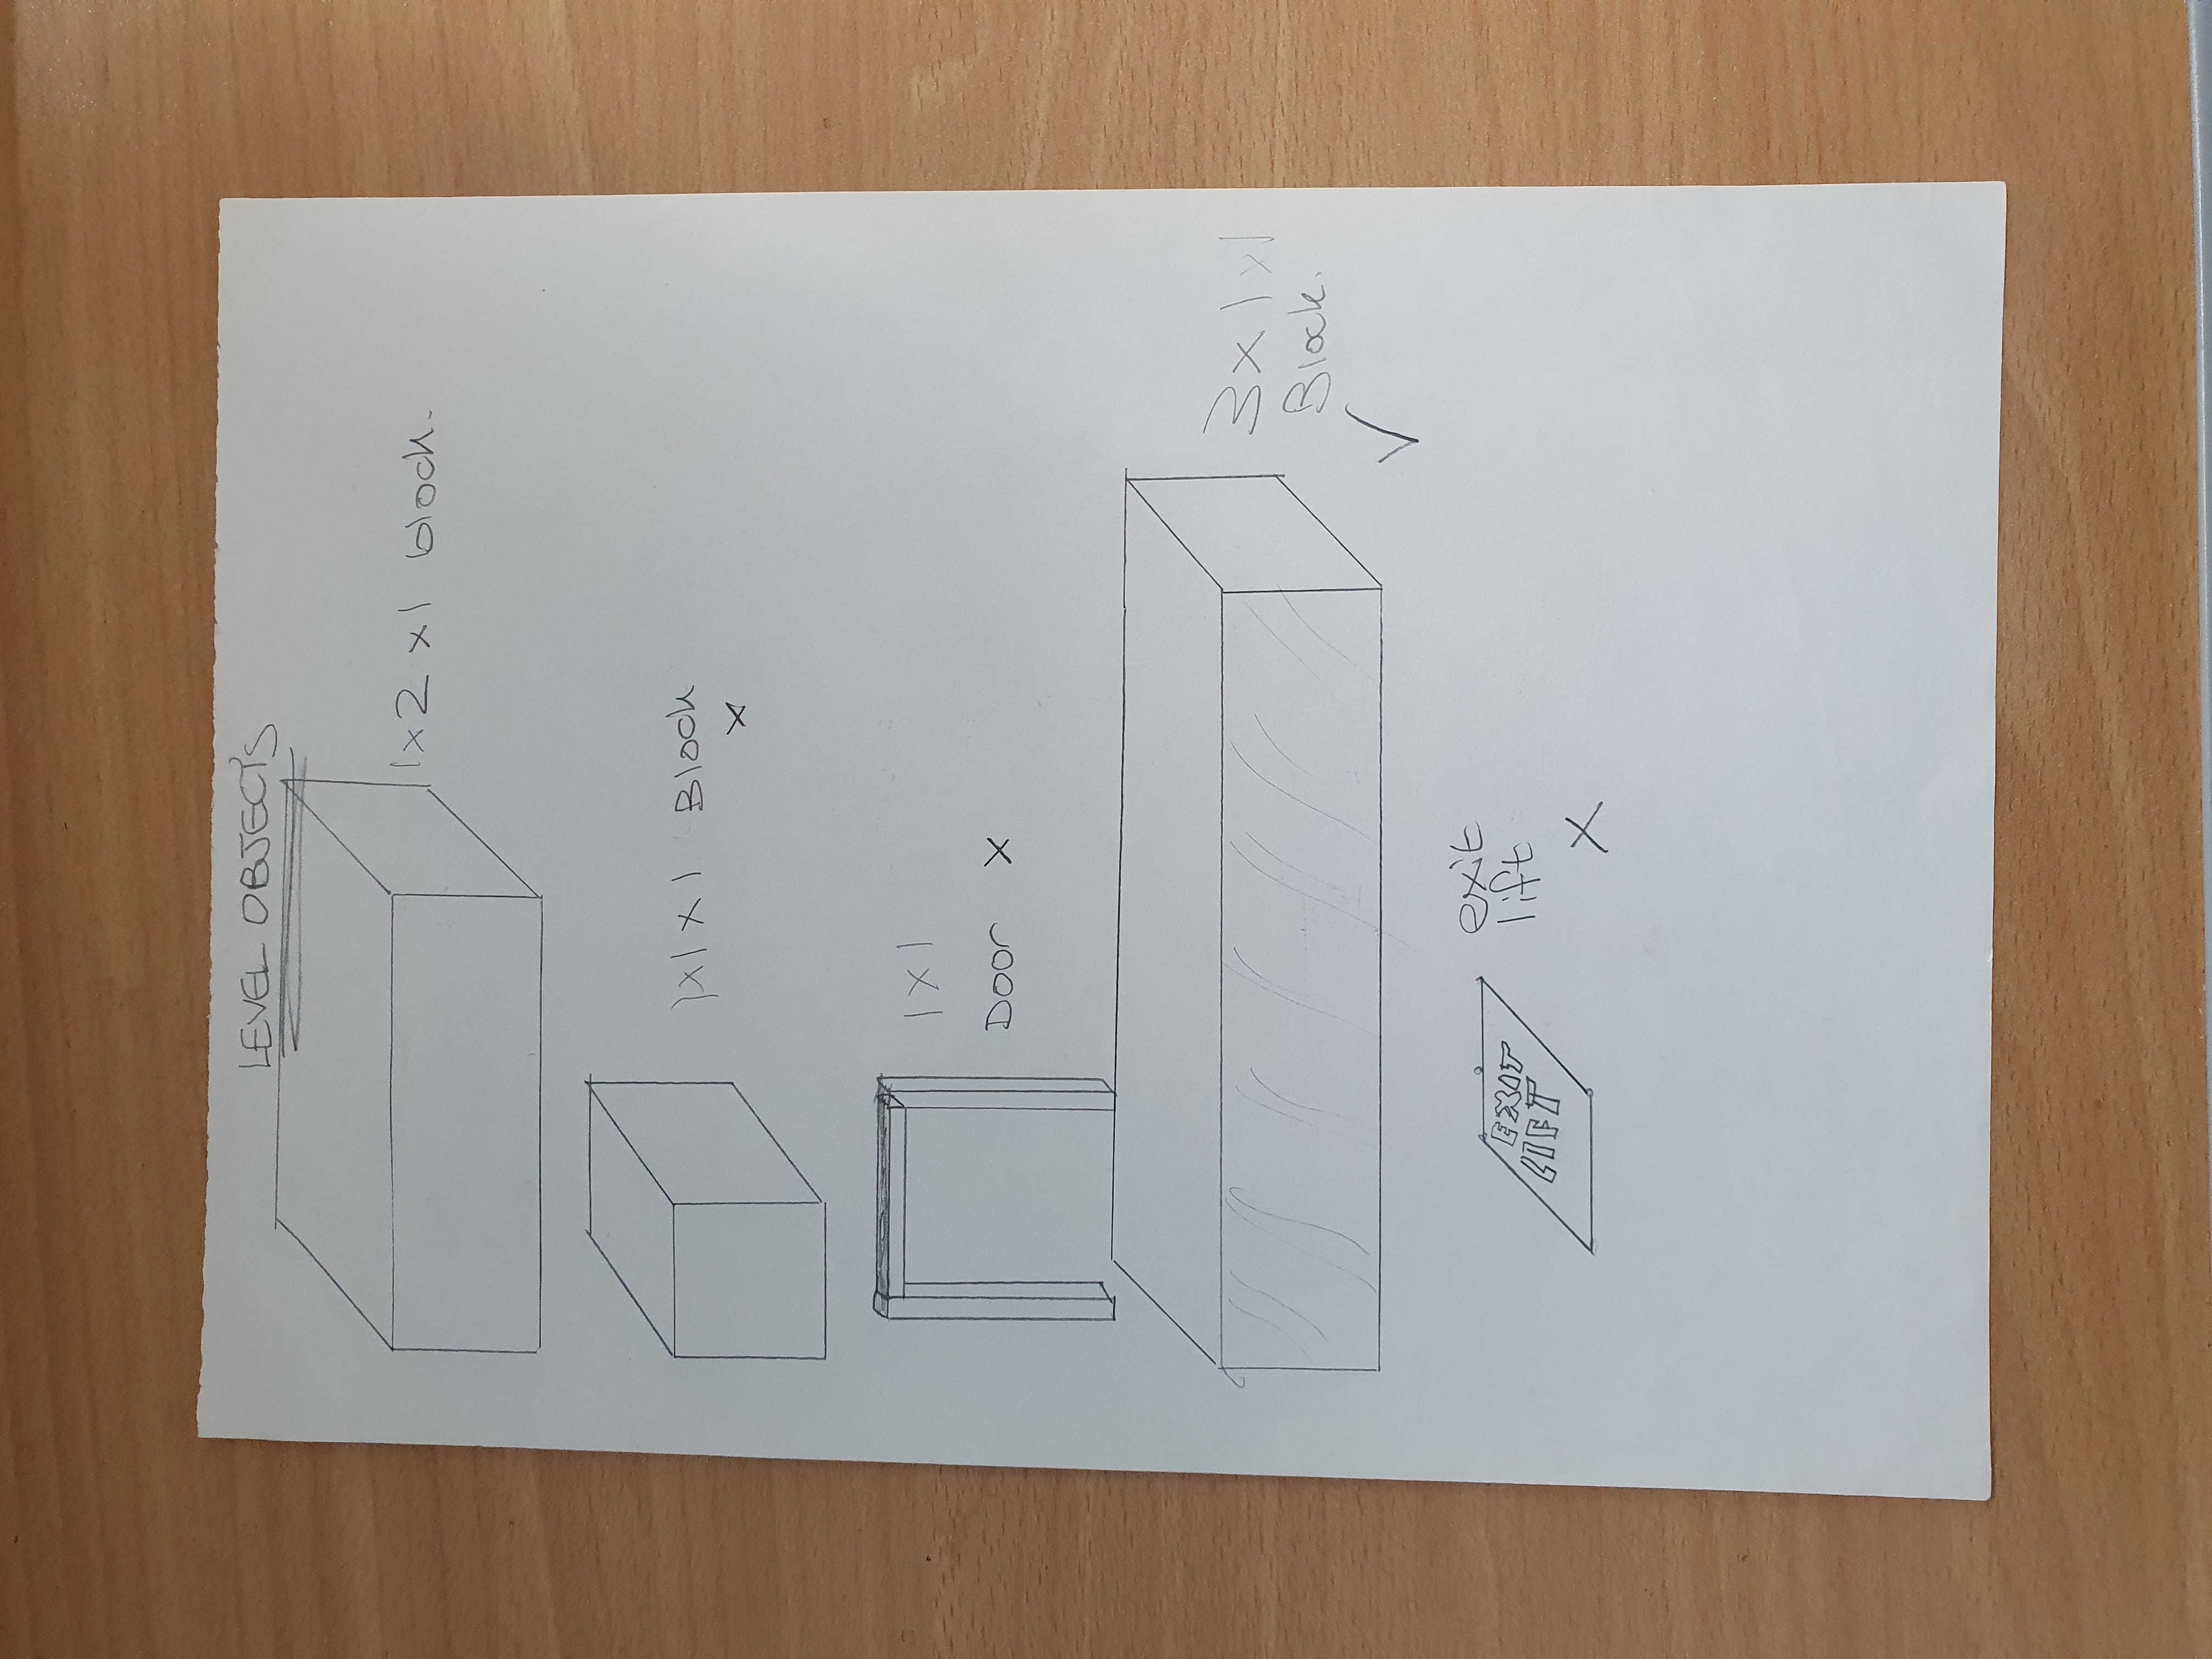 LEVEL OBJECTS
1x2 x1 block.
1x1 x 1 Block
x
1 x 1
Door x
3 x 1 x1
Block.
✓
EXIT
LIFT
exit
lift
x